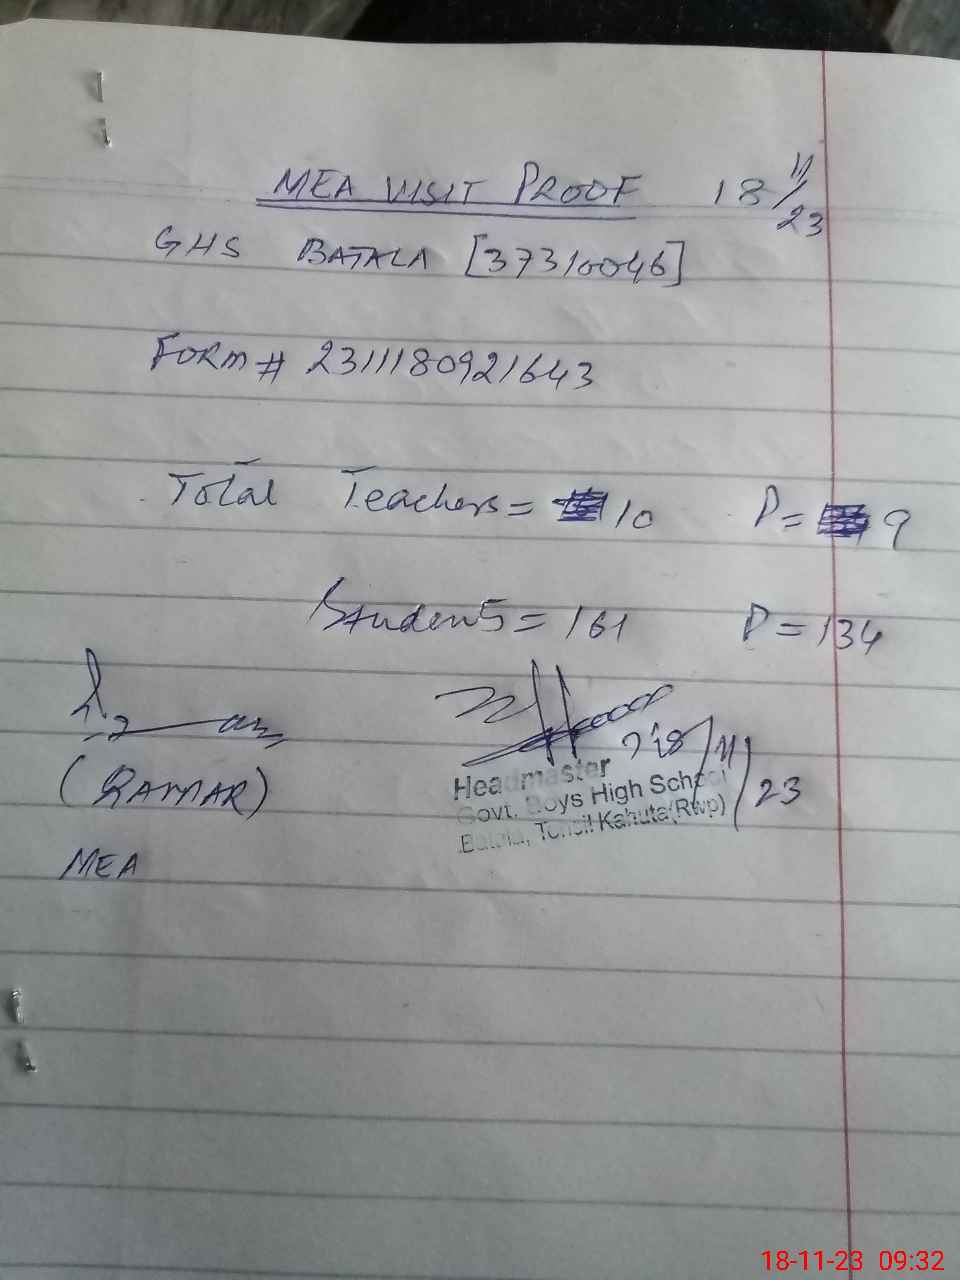 MEA VISIT PROOF 18/11/23
GHS BATALA [37310046]
FORM # 2311180921643
Total Teachers = 10 P = 9
Students = 161 P = 134
18/11/23
Headmaster
Govt. Boys High School
Batala, Tehsil Kahuta (Rwp)
MEA
18-11-23 09:32